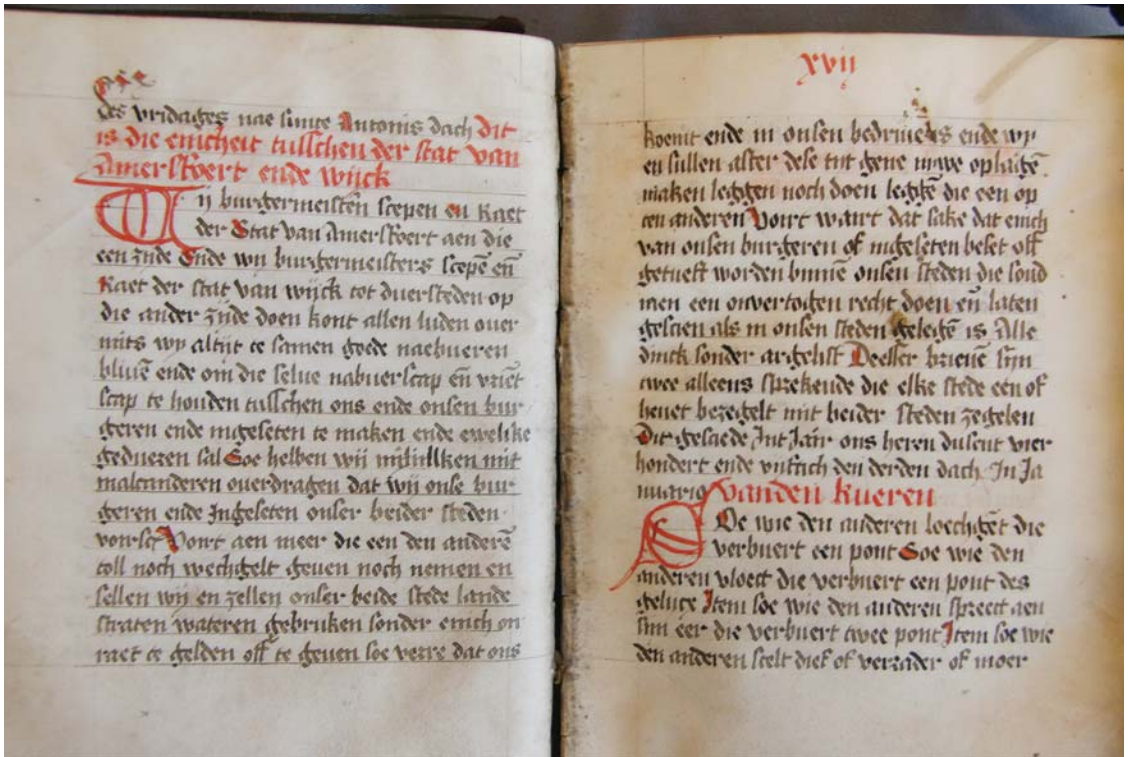 des vridages nae sunte Antonis dach dit
is die enicheit tusschen der stat van
Amersfoert ende wijck
Wij burgermeistēn scepen en Raet
der Stat van Amersfoert aen die
een zyde Ende wij burgermeisters scepē en̄
Raet der stat van wijck tot duersteden op
die ander zyde doen kont allen luden ouer
mits wy altijt te samen goede naebueren
bliuē ende om die selue nabuerscap en̄ vriēt
scap te houden tusschen ons ende onsen bur
geren ende ingeseten te maken ende ewelike
gedueren sal Soe hebben wij mit
malcanderen ouerdragen dat wij onse bur
geren ende Ingeseten onser beider steden
vorsc Vort aen meer die een den anderē
toll noch wechgelt geuen noch nemen en
sellen wij en zellen onser beide stede lande
straten wateren gebruken sonder enich on
raet te gelden off te geuen soe verre dat ons
xvij
koemt ende in onsen bedriue is ende wy
en sullen after dese tijt gene nywe oplagē
maken leggen noch doen leggē die een op
ten anderen Vort wairt dat sake dat enich
van onsen burgeren of ingeseten beset off
getueft worden binnē onsen steden die soud
men een onvertogen recht doen en̄ laten
gescien als in onsen steden gelegē is Alle
dinck sonder argelist Deeser brieuē sijn
twee alleens sprekende die elke stede een of
heuet bezegelt mit beider steden zegelen
Dit gesciede Int Jair ons heren dusent vier
hondert ende vijftich den derden dach In Ja
nuario vanden kueren
Soe wie den anderen loechgēt die
verbuert een pont Soe wie den
anderen vloect die verbuert een pont des
gelijce Item soe wie den anderen spreect aen
sijn eer die verbuert twee pont Item soe wie
den anderen scelt dief of verrader of moer